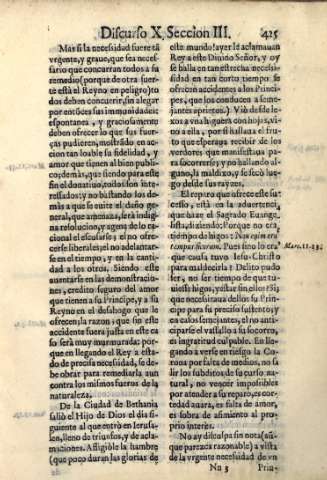 Discurso X, Seccion III. 425
Mas si la necessidad fuere tã
vrgente, y graue, que sea neces-
sario que concurran todos a su
remedio (porque de otra suer-
te està el Reyno en peligro) to
dos deben concurrir, sin alegar
por entõces sus immunidades:
espontanea, y graciosamente
deben ofrecer lo que sus fuer-
ças pudieren, mostrãdo en ac-
cion tan loable su fidelidad, y
amor que tienen al bien publi-
co; demàs, que siendo para este
fin el donatiuo, todos son inte-
ressados; y no bastando los de-
màs a que se euite el daño ge-
neral, que amenaza, serà indig-
na resolucion, y agena de lo ra-
cional el escusarse; y el no ofre-
cerse liberales; el no adelantar-
se en el tiempo, y en la canti-
dad a los otros. Siendo este
auentarse en las demonstracio-
nes, credito seguro del amor
que tienen a su Principe, y a su
Reyno en el desahogo que le
ofrecen; la razon; que sin este
accidente fuera justa en este ca
so serà muy murmurada: por-
que en llegando el Rey a esta-
do de precisa necessidad, se de-
be obrar para remediarla aun
contra los mismos fueros de la
naturaleza.
De la Ciudad de Bethania
saliò el Hijo de Dios el dia si-
guiente al que entrò en Ierusa-
len, lleno de triunfos, y de acla-
maciones. Affligible la hambre
(que poco duran las glorias de
este mundo! ayer le aclamauan
Rey a este Diuino Señor, y oy
se halla en tan estrecha necessi-
dad en tan corto tiempo se
ofrecen accidentes a los Princi-
pes, que los ponen en semejan-
tes aprietos.) Viò desde le-
xos a vna higuera con hojas, vi-
no a ella, por si hallaua el fru-
to que esperaua recibir de los
verdores que manifestaua pa-
ra socorrerse; y no hallando al-
guno, la maldixo, y se secò lue-
go desde sus rayzes.
El reparo que ofrece este su-
cesso, està en la aduertenci,
que haze el Sagrado Euange-
lista, diziendo: porque no era
tiempo de higos: Non enim erat
tempus ficorum. Pues sino lo era
que causa tuvo Iesu-Christo
para maldecirla? Delito pudo
ser, no ser tiempo de que tu-
uiesse higos; y estar sin ellos? Si;
que necessitaua dellos su Prin-
cipe para su preciso sustento; y
en casos semejantes, el no anti-
ciparse el vassallo a su socorro,
es ingratitud culpable. En lle-
gando a verse en riesgo la Co-
rona por falta de medios, no sa
dir los subditos, de su curso na-
tural, no vencer impossibles
por atender a su reparo, es cor-
tedad auara, es falta de amor,
es sobra de asimiento al pro-
prio interès.
No ay disculpa sin nota (aũ-
que parezca razonable) a vista
de la vrgente necessidad de vn
Marc. 11. 13.
Nn 3 Prin-